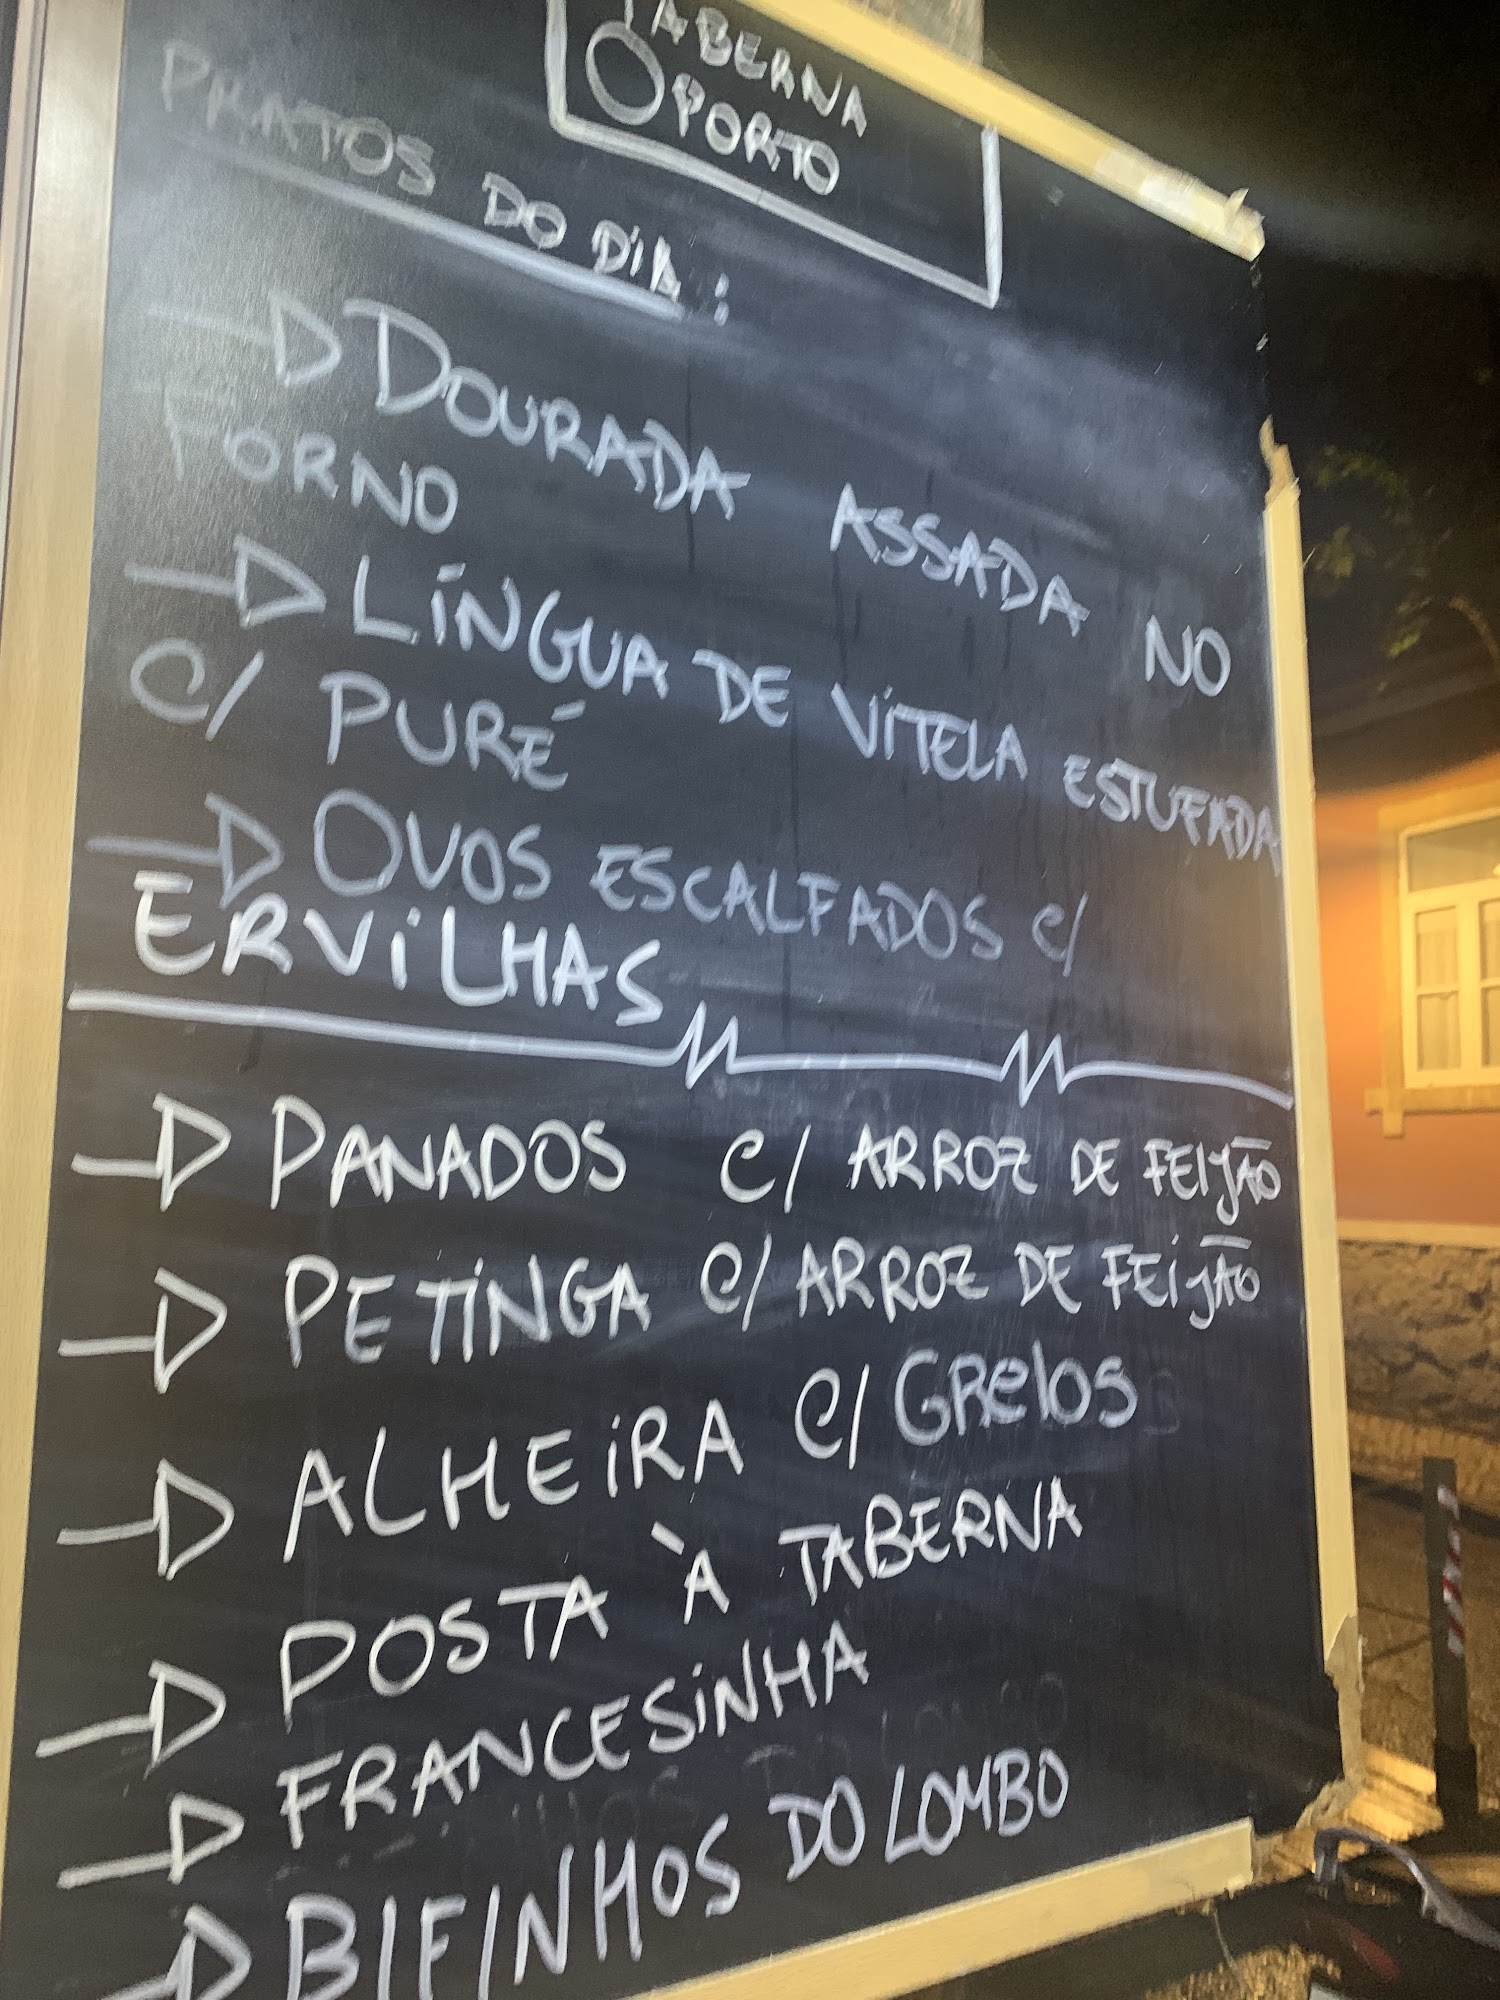 TABERNA
OPORTO
PRATOS DO DIA:
DOURADA ASSADA NO
FORNO
LÍNGUA DE VITELA ESTUFADA
C/ PURÉ
OVOS ESCALFADOS C/
ERVILHAS
PANADOS C/ ARROZ DE FEIJÃO
PETINGA C/ ARROZ DE FEIJÃO
ALHEIRA C/ GRELOS
POSTA À TABERNA
FRANCESINHA
BIFINHOS DO LOMBO